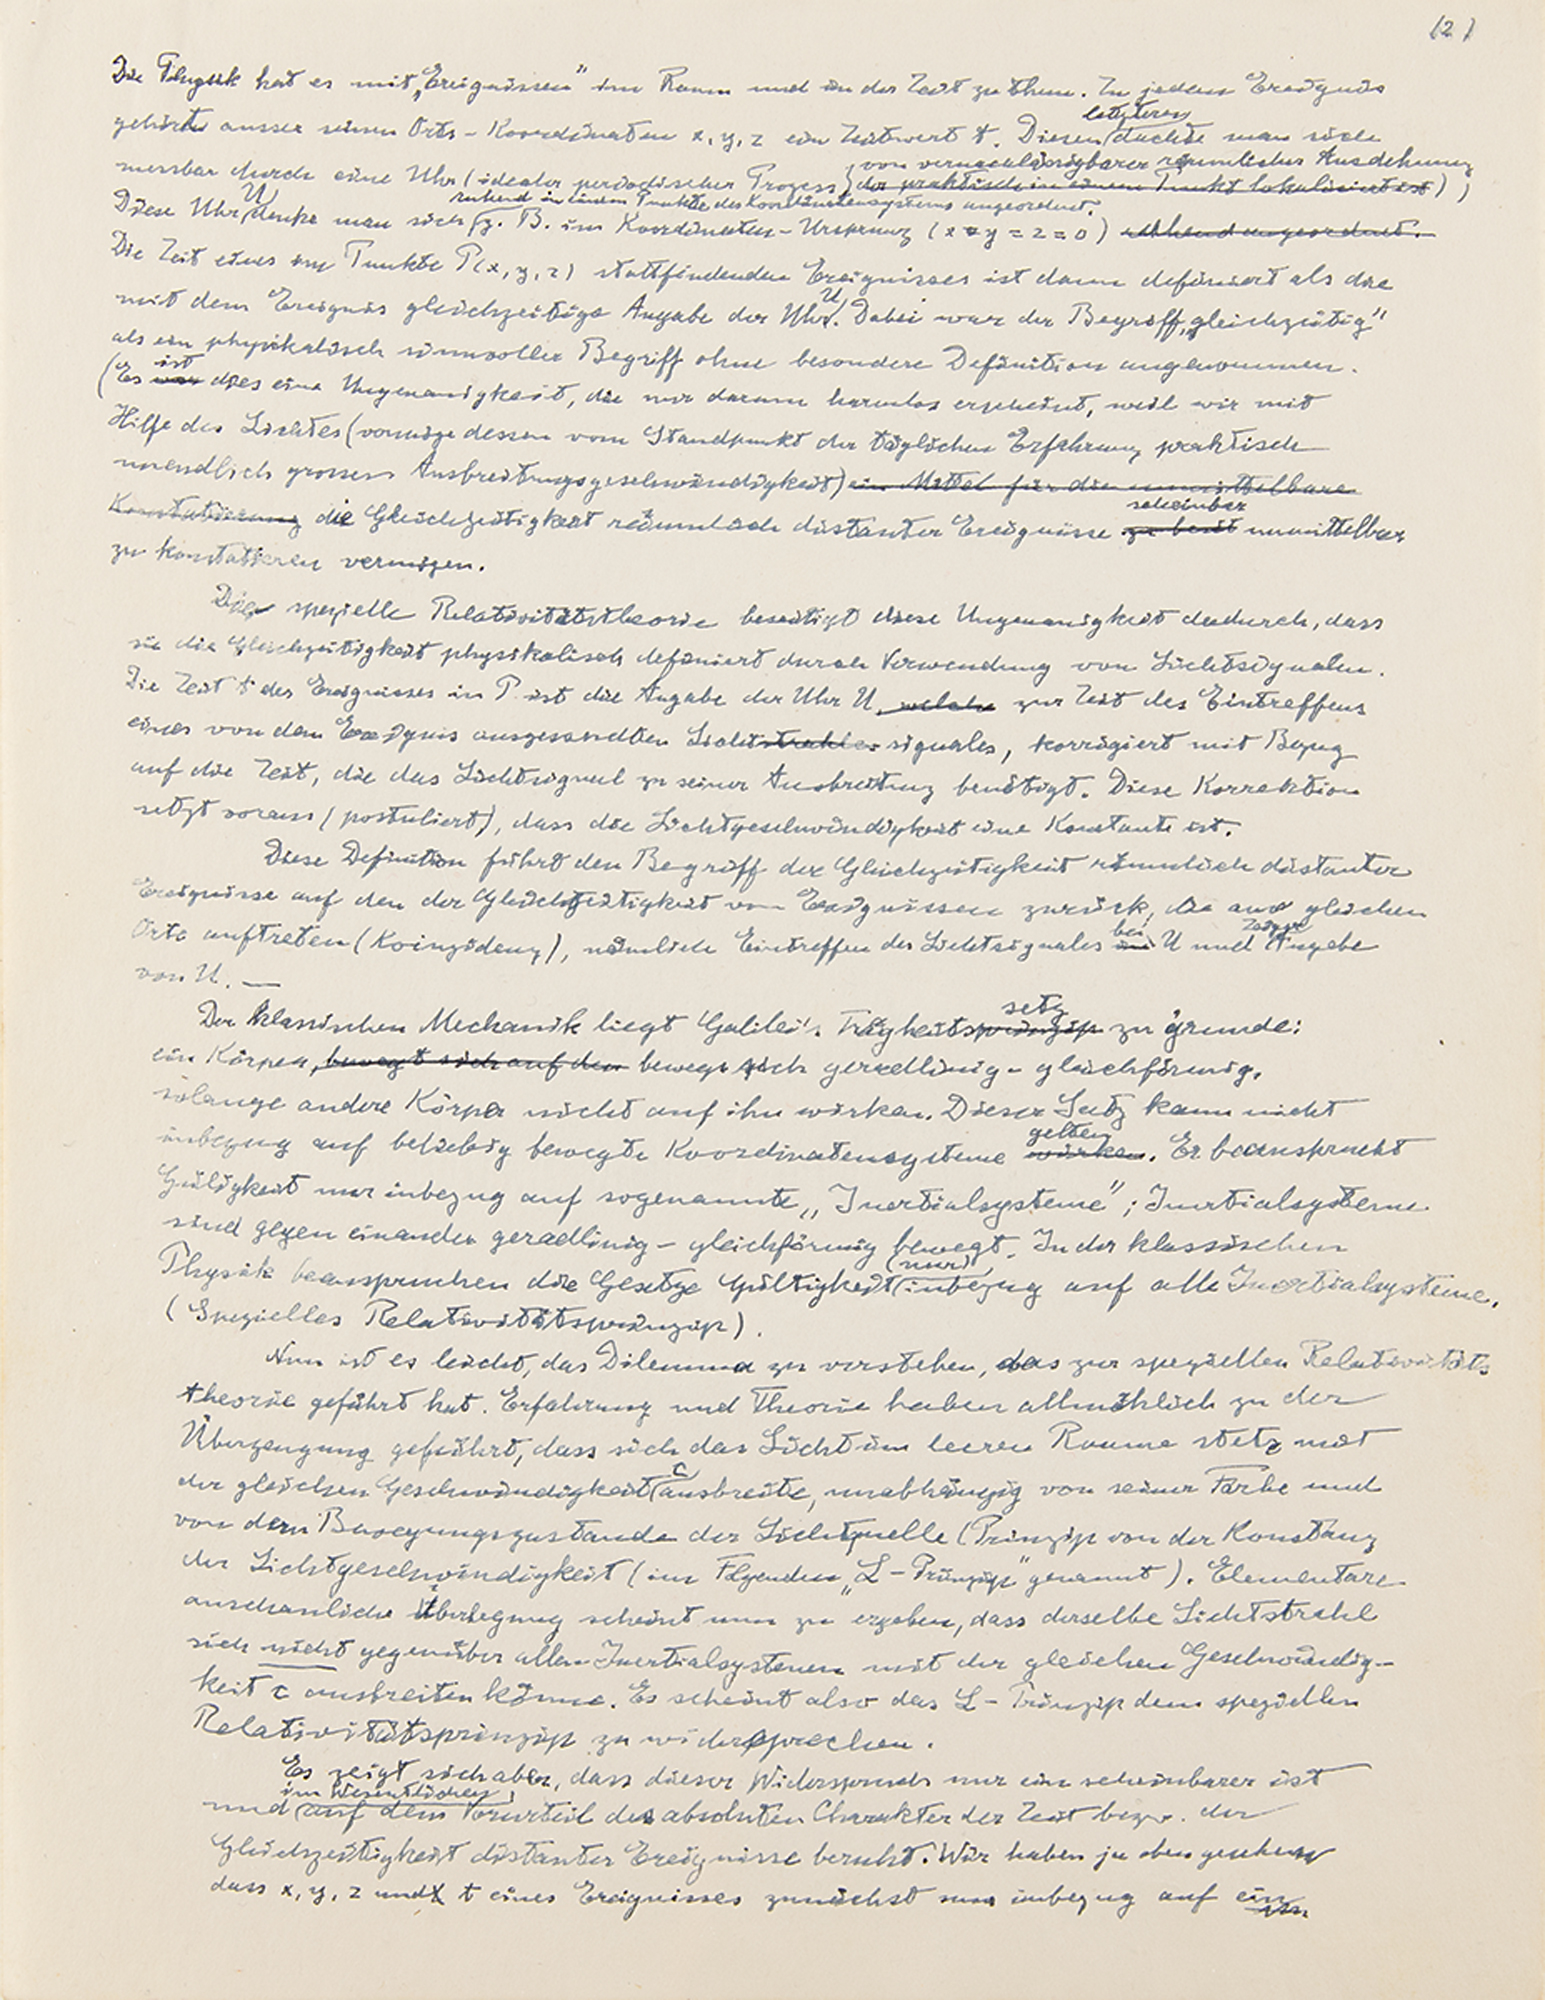 (2)
Die Physik hat es mit „Ereignissen" im Raum und in der Zeit zu thun. Zu jedem Ereignis
letzteren
gehört ausser seinen Orts-Koordinaten x, y, z ein Zeitwert t. Diesen dachte man sich
von vernachlässigbarer räumlicher Ausdehnung
messbar durch eine Uhr (idealer periodischer Prozess der praktisch in einem Punkt lokalisiert ist)
ruhend in einem Punkte des Koordinatensystems angeordnet.
Diese Uhr U denke man sich z. B. im Koordinaten-Ursprung (x = y = z = 0) ruhend angeordnet.
Die Zeit eines im Punkte P(x, y, z) stattfindenden Ereignisses ist dann definiert als die
mit dem Ereignis gleichzeitige Angabe der Uhr U. Dabei war der Begriff „gleichzeitig"
als ein physikalisch sinnvoller Begriff ohne besondere Definition angenommen.
ist
(Es war dies eine Ungenauigkeit, die nur darum harmlos erscheint, weil wir mit
Hilfe des Lichtes (vermöge dessen vom Standpunkt der täglichen Erfahrung praktisch
unendlich grossen Ausbreitungsgeschwindigkeit) ein Mittel für die unmittelbare
scheinbar
Konstatierung die Gleichzeitigkeit räumlich distanter Ereignisse unmittelbar
zu konstatieren vermögen.
Die spezielle Relativitätstheorie beseitigt diese Ungenauigkeit dadurch, dass
sie die Gleichzeitigkeit physikalisch definiert durch Verwendung von Lichtsignalen.
Die Zeit t des Ereignisses in P ist die Angabe der Uhr U, welche zur Zeit des Eintreffens
eines von dem Ereignis ausgesandten Lichtstrahles signales, korrigiert mit Bezug
auf die Zeit, die das Lichtsignal zu seiner Ausbreitung benötigt. Diese Korrektion
setzt voraus (postuliert), dass die Lichtgeschwindigkeit eine Konstante ist.
Diese Definition führt den Begriff der Gleichzeitigkeit räumlich distanter
Ereignisse auf den der Gleichzeitigkeit von Ereignissen zurück, die am gleichen
bei
Orte auftreten (Koinzidenz), nämlich Eintreffen des Lichtsignales in U und Angabe
von U. —
setz
Der klassischen Mechanik liegt Galilei's Trägheitsprinzip zu grunde:
ein Körper, bewegt sich auf den bewegt sich geradlinig-gleichförmig,
solange andere Körper nicht auf ihn wirken. Dieser Satz kann nicht
gelten
inbezug auf beliebig bewegte Koordinatensysteme wirken. Er beansprucht
Gültigkeit nur inbezug auf sogenannte „Inertialsysteme"; Inertialsysteme
sind gegen einander geradlinig-gleichförmig bewegt. In der klassischen
(nur)
Physik beanspruchen die Gesetze Gültigkeit inbezug auf alle Inertialsysteme.
(Spezielles Relativitätsprinzip).
Nun ist es leicht, das Dilemma zu verstehen, das zur speziellen Relativitäts
theorie geführt hat. Erfahrung und Theorie haben allmählich zu der
Überzeugung geführt, dass sich das Licht im leeren Raume stets mit
der gleichen Geschwindigkeit c ausbreite, unabhängig von seiner Farbe und
von dem Bewegungszustande der Lichtquelle (Prinzip von der Konstanz
der Lichtgeschwindigkeit (im Folgenden „L-Prinzip" genannt). Elementare
anschauliche Überlegung scheint nun zu ergeben, dass derselbe Lichtstrahl
sich nicht gegenüber allen Inertialsystemen mit der gleichen Geschwindig-
keit c ausbreiten könne. Es scheint also das L-Prinzip dem speziellen
Relativitätsprinzip zu widersprechen.
Es zeigt sich aber, dass dieser Widerspruch nur ein scheinbarer ist
im Wesentlichen
und auf dem Vorurteil des absoluten Charakter der Zeit bezw. der
Gleichzeitigkeit distanter Ereignisse beruht. Wir haben ja oben gesehen
dass x, y, z und t eines Ereignisses zunächst nur inbezug auf ein